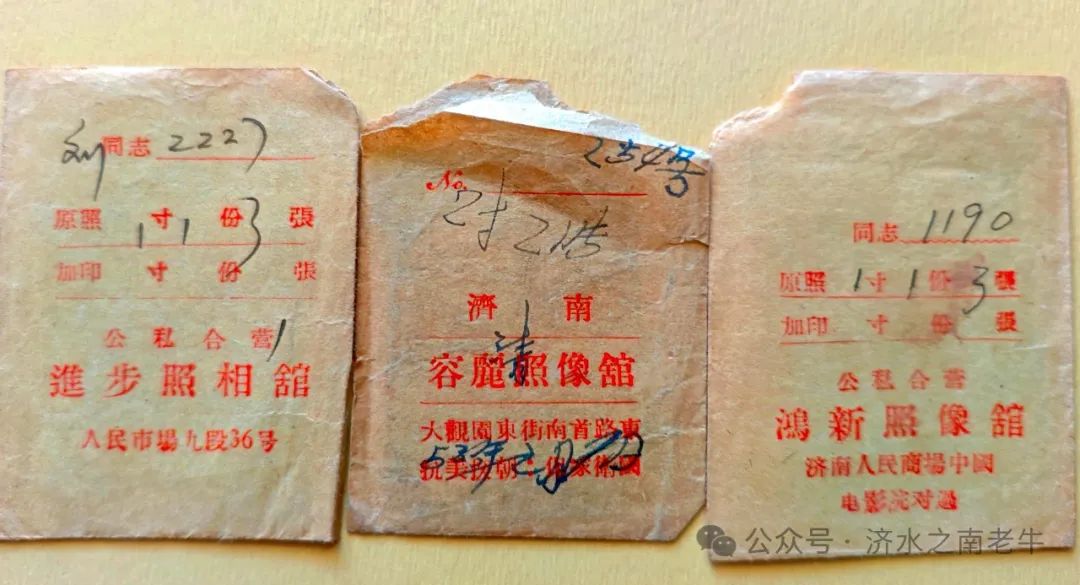 刘同志 2227
原照 1 寸 1 份 3 張
加印 寸 份 張
公私合营
進步照相舘
人民市場九段36号
254号
No.
2寸2张
濟南
容麗照像舘
大觀園東街南首路東
抗美援朝 保家衛國
53年2月
同志 1190
原照 1 寸 1 份 3 張
加印 寸 份 張
公私合营
鴻新照像舘
济南人民商場中國
电影院对過
公众号 · 济水之南老牛